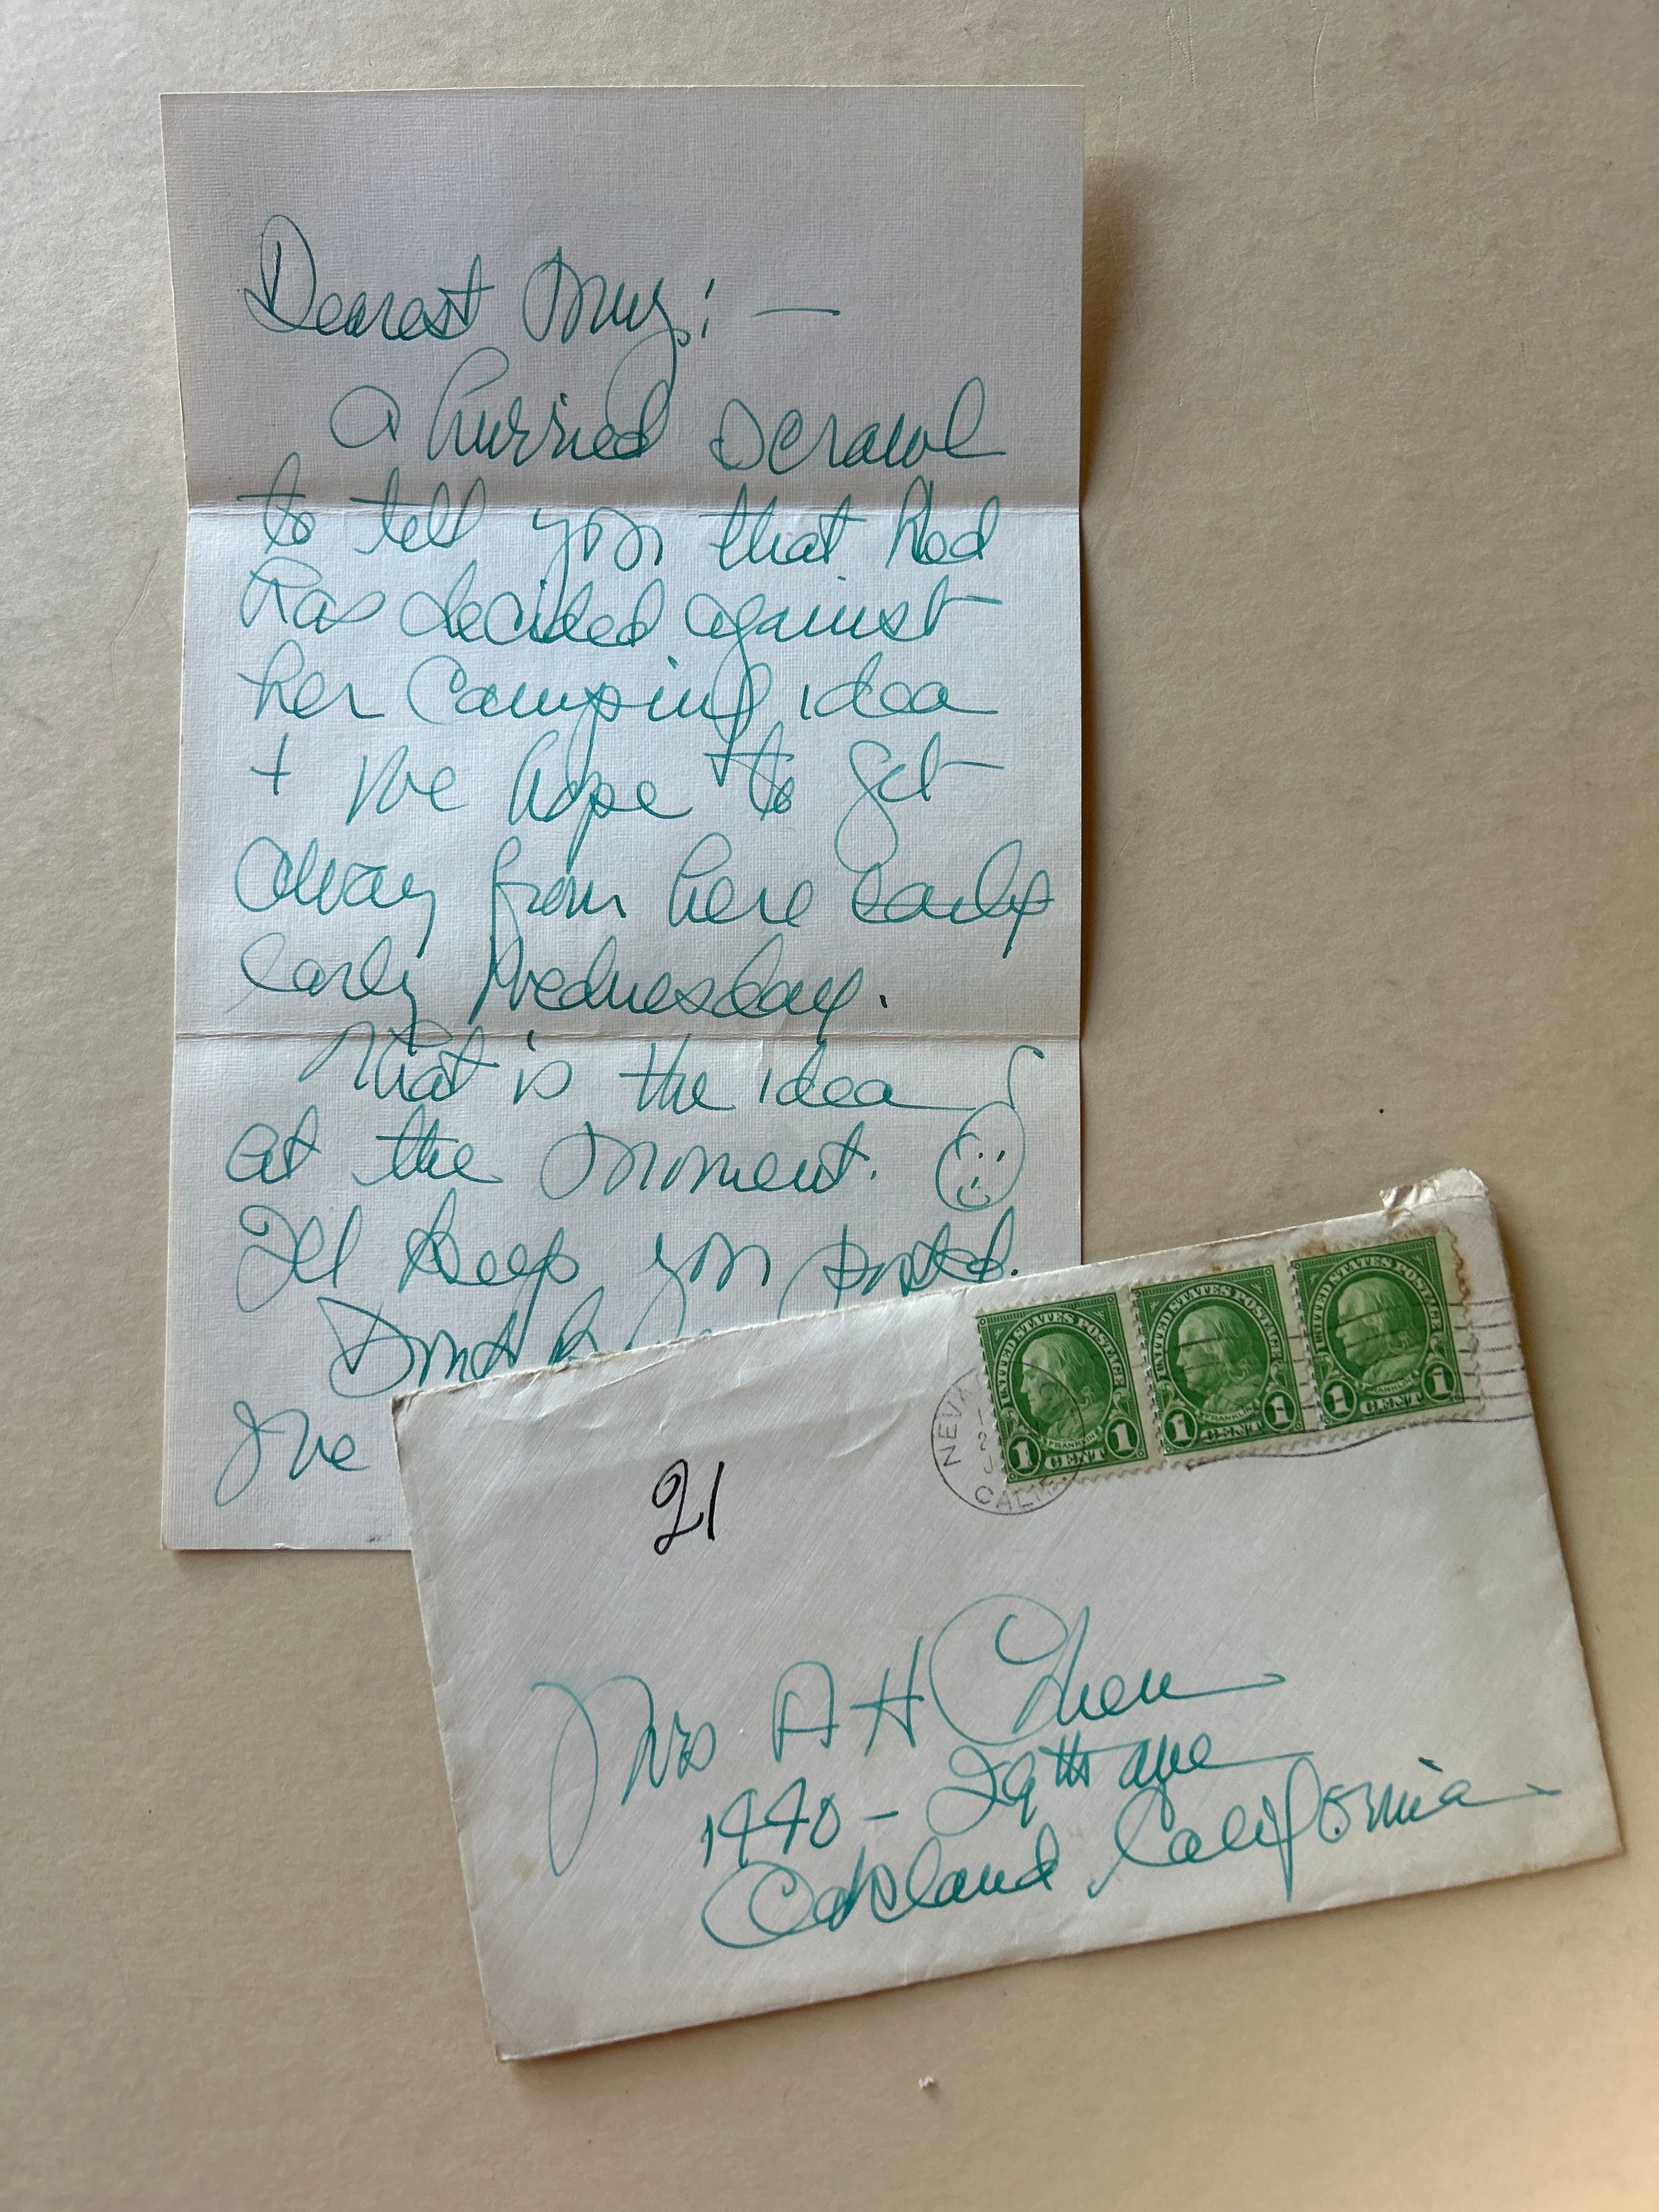 Dearest Muz: —
A hurried scrawl
to tell you that Hod
has decided against
her camping idea
+ we hope to get
away from here early
early Wednesday.
That is the idea
at the moment.
I'll keep you posted.
Don't
We
NEVA
CALIF.
UNITED STATES POSTAGE
FRANKLIN
1 CENT 1
UNITED STATES POSTAGE
FRANKLIN
1 CENT 1
UNITED STATES POSTAGE
FRANKLIN
1 CENT 1
21
Mrs A H Chen
1440 - 29th Ave
Oakland California